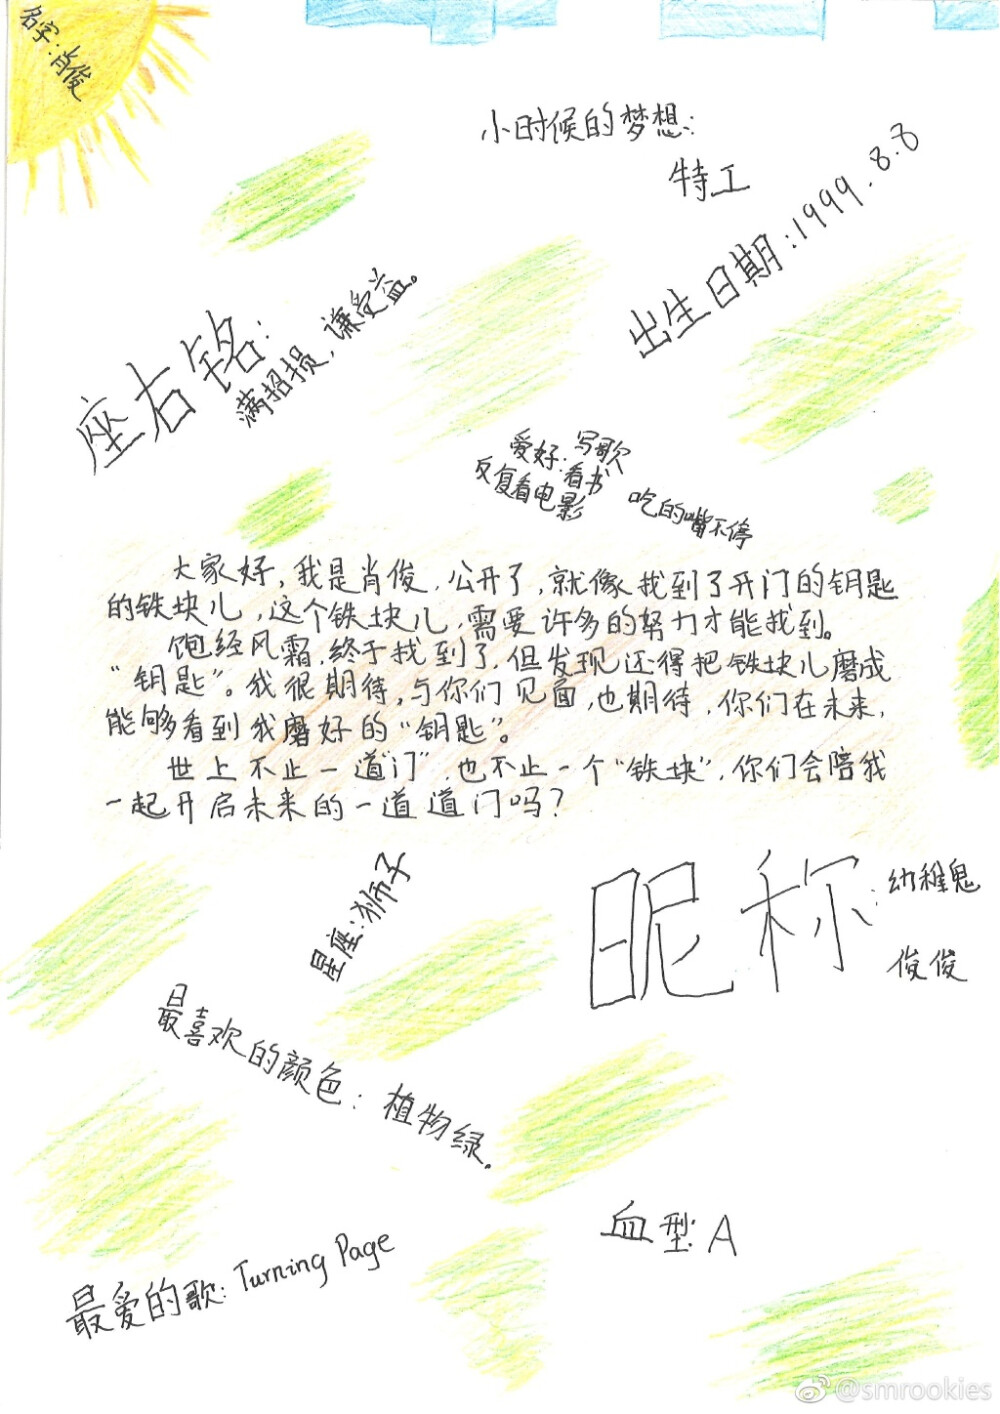 名字:肖俊
小时候的梦想:
特工
出生日期:1999.8.8
座右铭:
满招损,谦受益。
爱好:写歌
看书
反复看电影
吃的嘴不停
大家好,我是肖俊,公开了,就像找到了开门的钥匙
的铁块儿,这个铁块儿,需要许多的努力才能找到。
饱经风霜,终于找到了,但发现还得把铁块儿磨成
“钥匙”。我很期待,与你们见面,也期待,你们在未来,
能够看到我磨好的“钥匙”。
世上不止一道“门”,也不止一个“铁块”,你们会陪我
一起开启未来的一道道门吗?
星座:狮子
昵称:幼稚鬼
俊俊
最喜欢的颜色:植物绿.
血型:A
最爱的歌:Turning Page
@smrookies